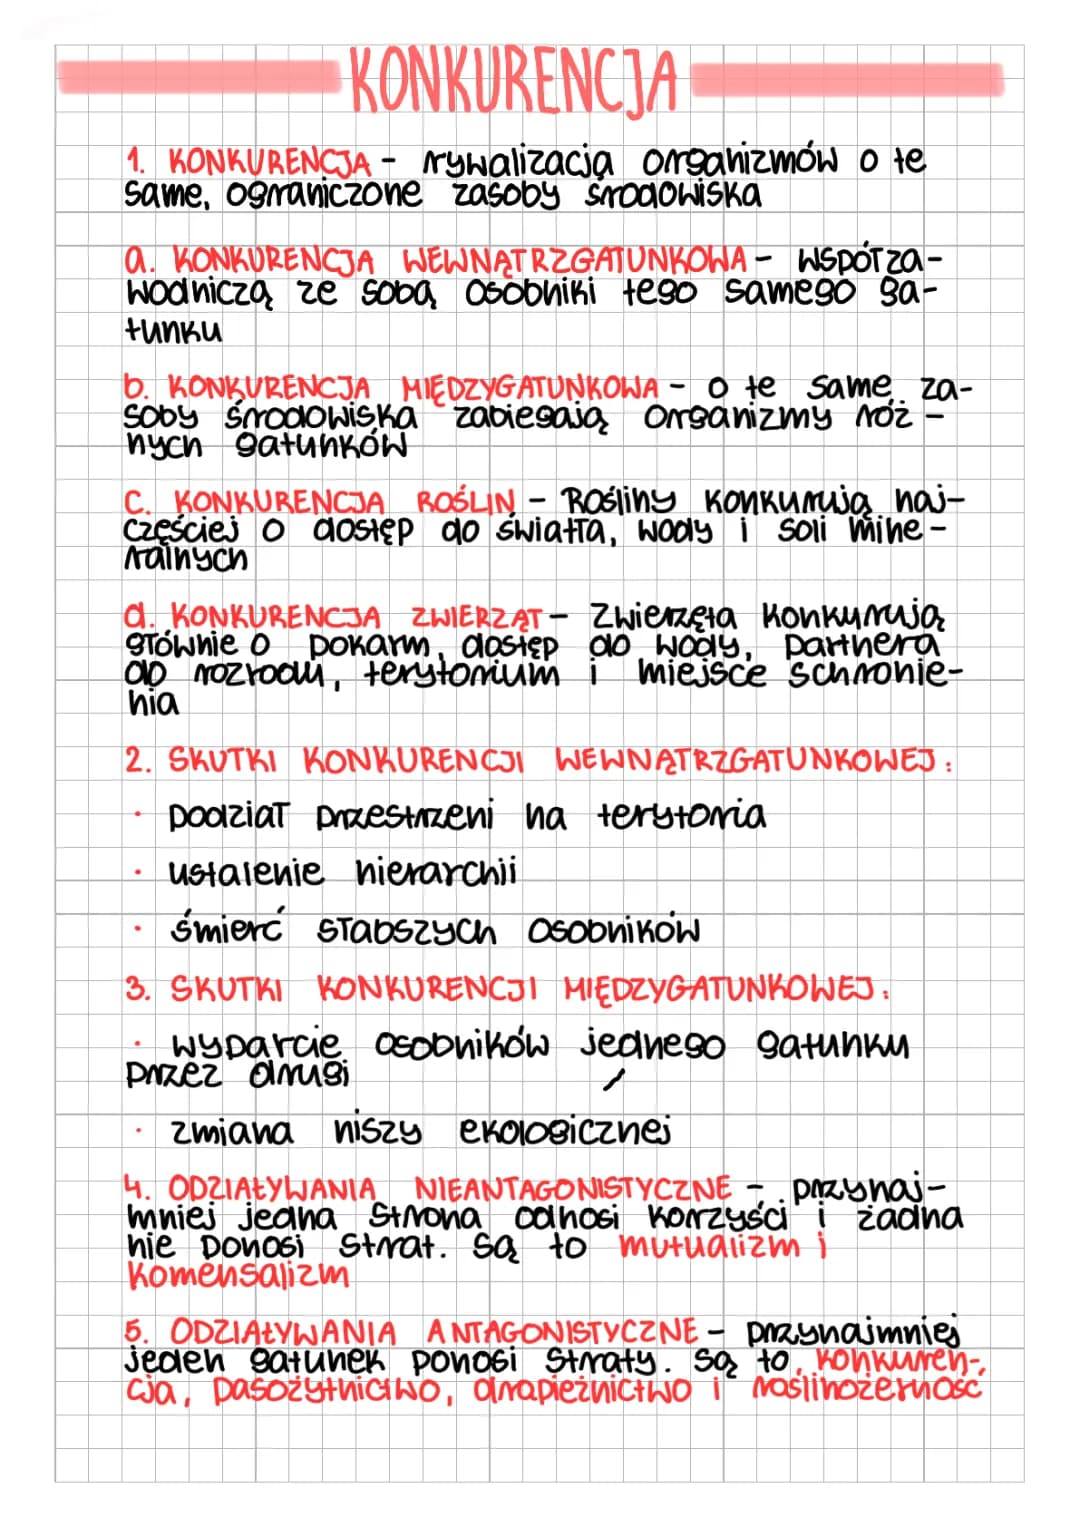 KONKURENCJA
1. KONKURENCJA - rywalizacja organizmów o te
same, ograniczone zasoby środowiska
a. KONKURENCJA WEWNĄTRZGATUNKOWA - współza-
wodniczą ze sobą osobniki tego samego ga-
tunku
b. KONKURENCJA MIĘDZYGATUNKOWA - o te same za-
soby środowiska zabiegają organizmy róż-
nych gatunków
c. KONKURENCJA ROŚLIN - Rośliny konkurują naj-
częściej o dostęp do światła, wody i soli mine-
ralnych
d. KONKURENCJA ZWIERZĄT - Zwierzęta konkurują
głównie o pokarm, dostęp do wody, partnera
do rozrodu, terytorium i miejsce schronie-
nia
2. SKUTKI KONKURENCJI WEWNĄTRZGATUNKOWEJ:
· podział przestrzeni na terytoria
· ustalenie hierarchii
· śmierć słabszych osobników
3. SKUTKI KONKURENCJI MIĘDZYGATUNKOWEJ:
· wyparcie osobników jednego gatunku
przez drugi
· zmiana niszy ekologicznej
4. ODZIAŁYWANIA NIEANTAGONISTYCZNE - przynaj-
mniej jedna strona odnosi korzyści i żadna
nie ponosi strat. Są to mutualizm i
komensalizm
5. ODZIAŁYWANIA ANTAGONISTYCZNE - przynajmniej
jeden gatunek ponosi straty. Są to konkuren-
cja, pasożytnictwo, drapieżnictwo i roślinożerność